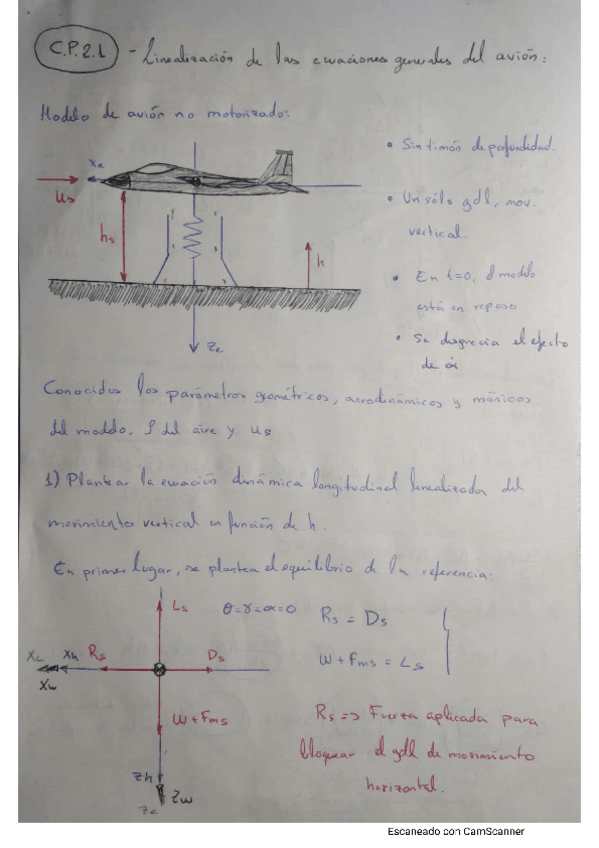 C.P.2.1 - Linealización de las ecuaciones generales del avión:
Modelo de avión no motorizado:
• Sin timón de profundidad.
xc
us
hs
h
zc
• Un sólo gdl, mov.
vertical.
• En t=0, el modelo
está en reposo
• Se desprecia el efecto
de α̇
Conocidos los parámetros geométricos, aerodinámicos y másicos
del modelo, ρ del aire y us
1) Plantear la ecuación dinámica longitudinal linealizada del
movimiento vertical en función de h.
En primer lugar, se plantea el equilibrio de la referencia:
Ls
θ=γ=α=0
Rs = Ds
W+Fms = Ls
xc xh Rs Ds
xw
W+Fms
zh
zw
zc
Rs => Fuerza aplicada para
bloquear el gdl de movimiento
horizontal.
Escaneado con CamScanner